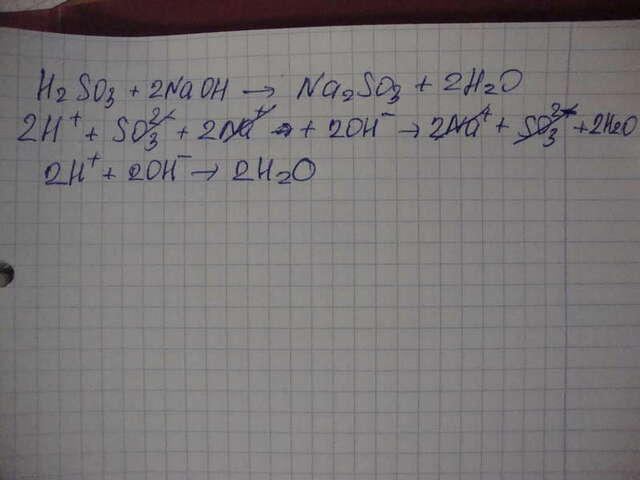 H₂SO₃ + 2NaOH → Na₂SO₃ + 2H₂O
2H⁺ + SO₃²⁻ + 2Na⁺ + 2OH⁻ → 2Na⁺ + SO₃²⁻ + 2H₂O
2H⁺ + 2OH⁻ → 2H₂O